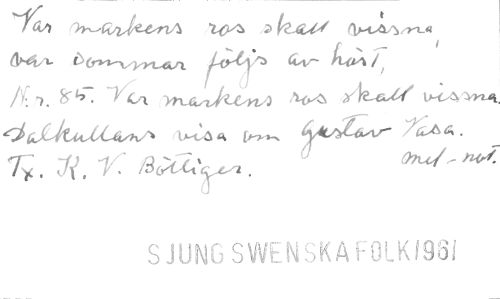 Var markens ros skall vissna,
var sommar följs av höst,
N.r. 85. Var markens ros skall vissna.
Dalkullans visa om Gustav Vasa.
Tx. K. V. Böttiger. mel-not.
SJUNG SWENSKA FOLK/1961